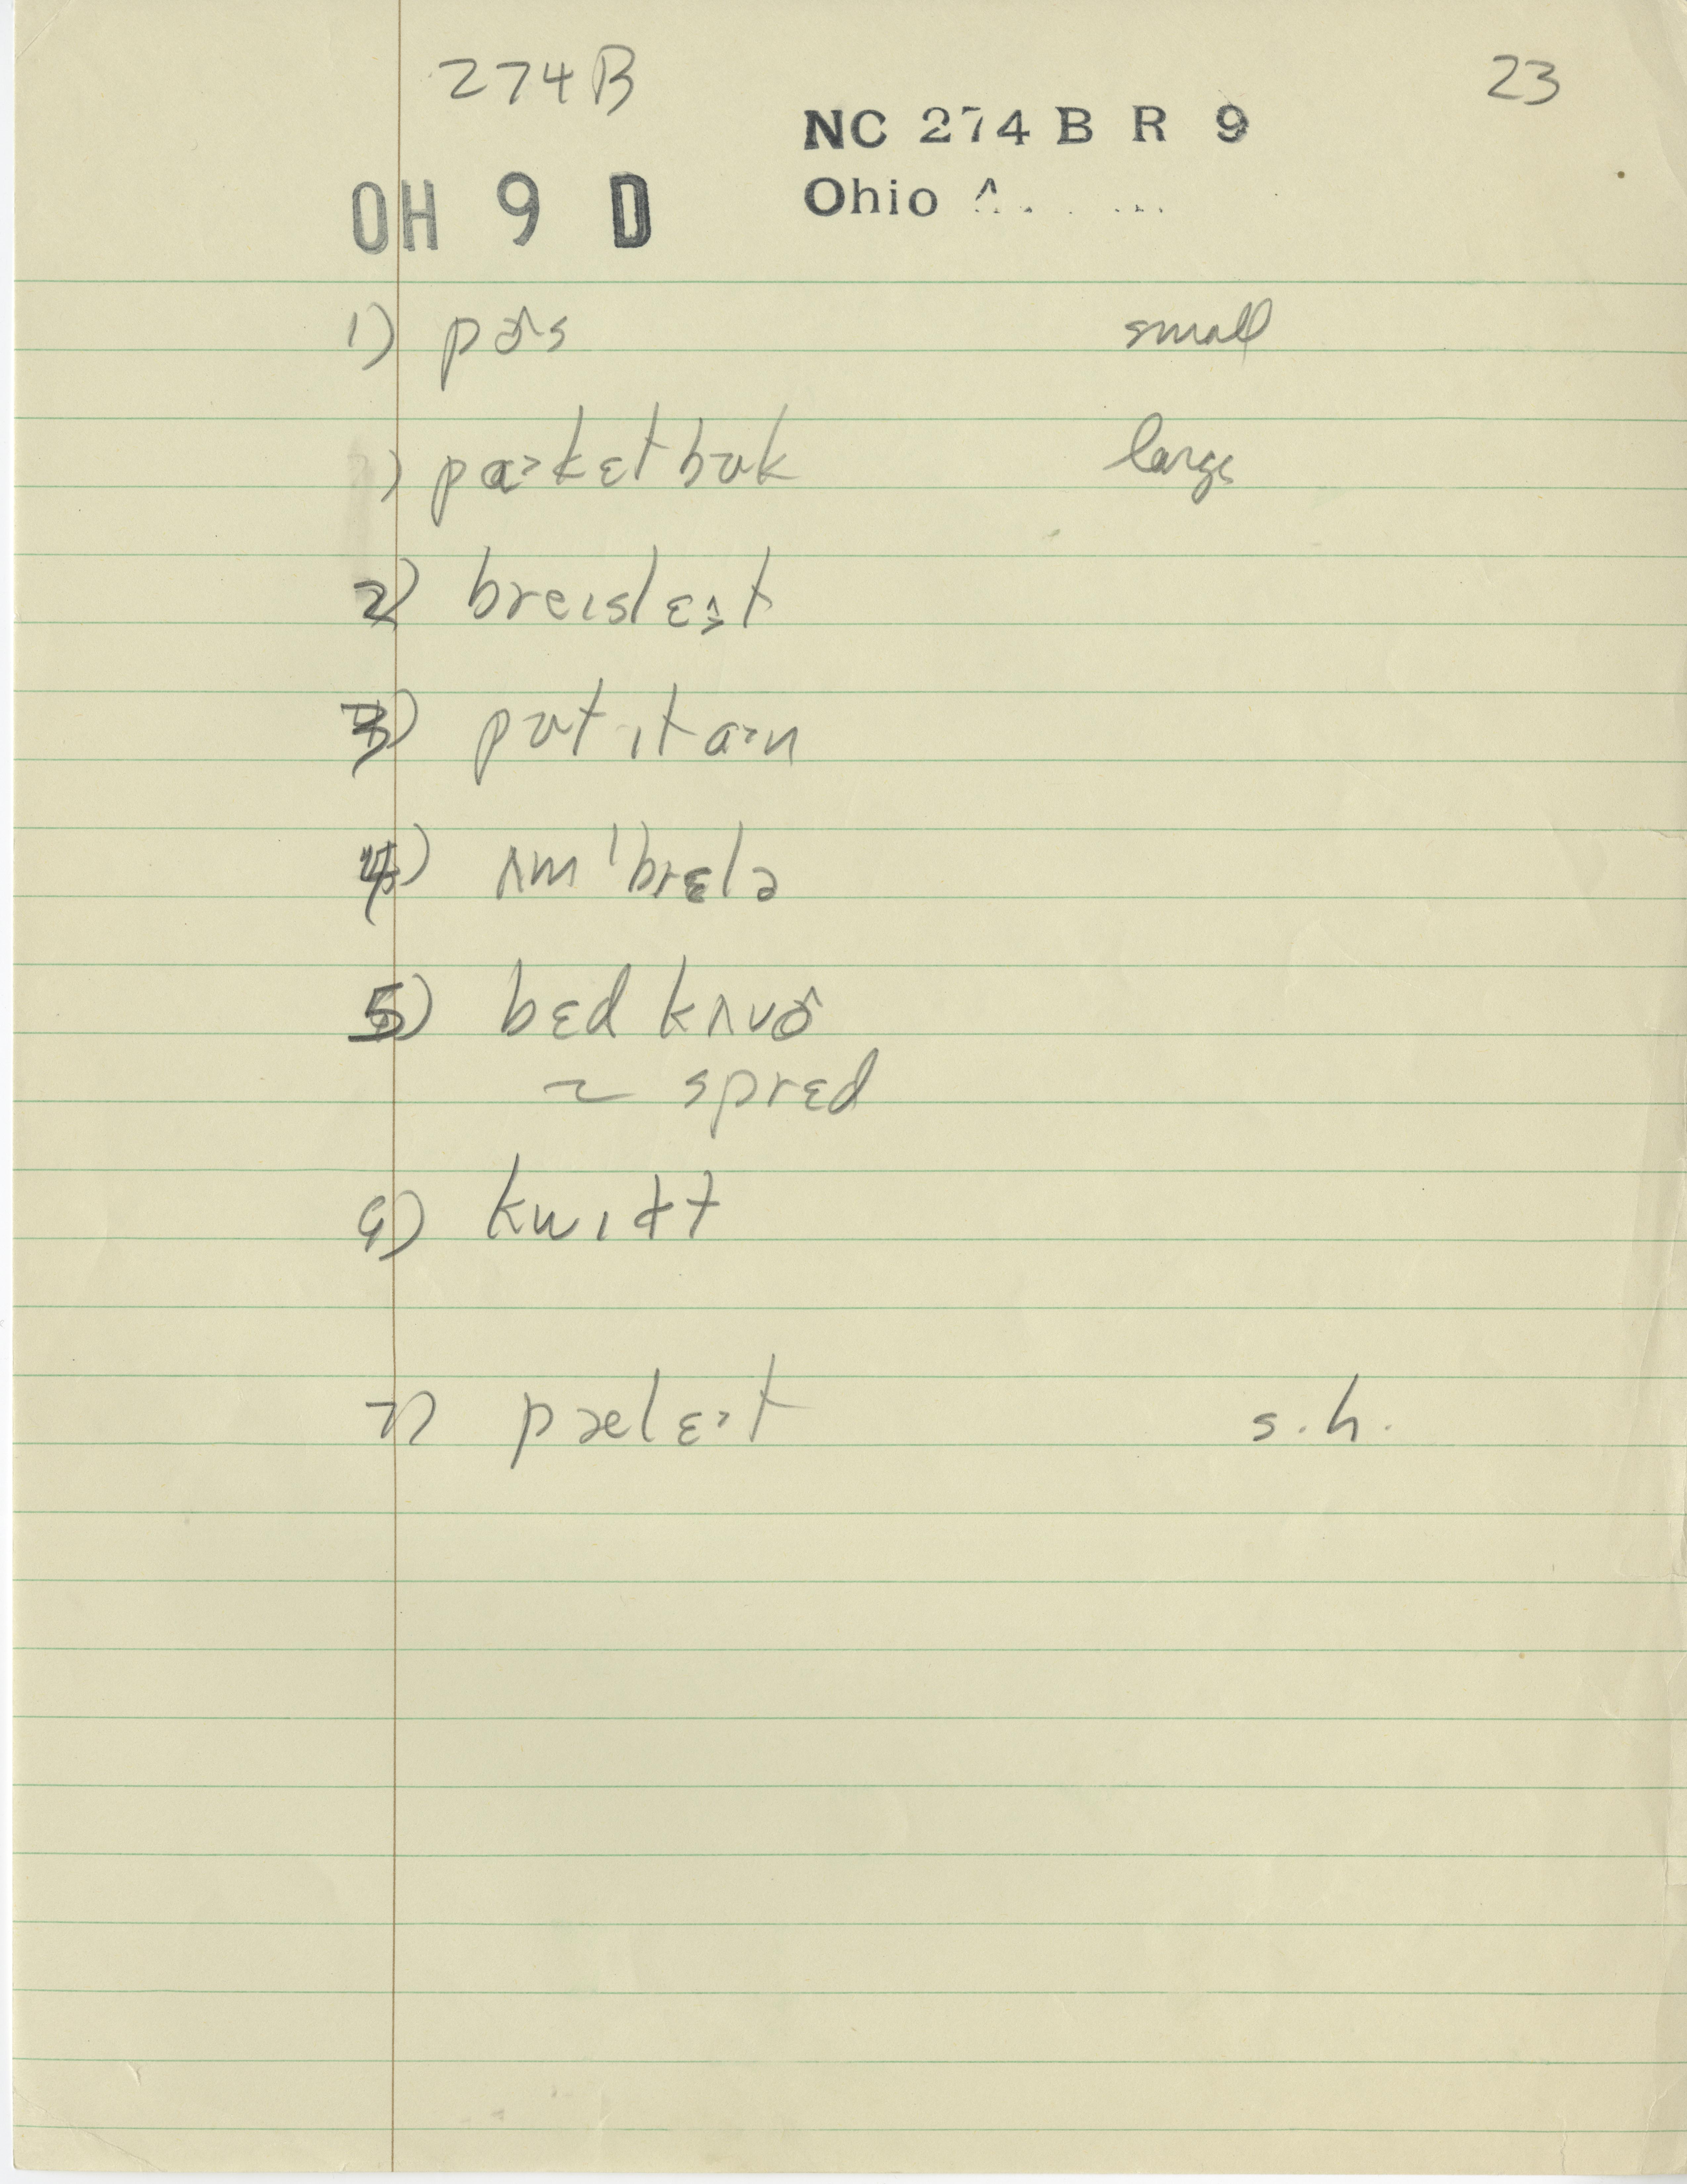 274B
23
NC 274 B R 9
OH 9 D
Ohio
1) pɚs small
) pɑ˃kɛt bʊk large
2) breɪslɛ˃t
3) pʊt ɪt ɑ˃n
4) ʌmˈbrɛlə
5) bɛd kʌvɚ
~ sprɛd
6) kwɪɫt
7) pælɛ˃t s.h.